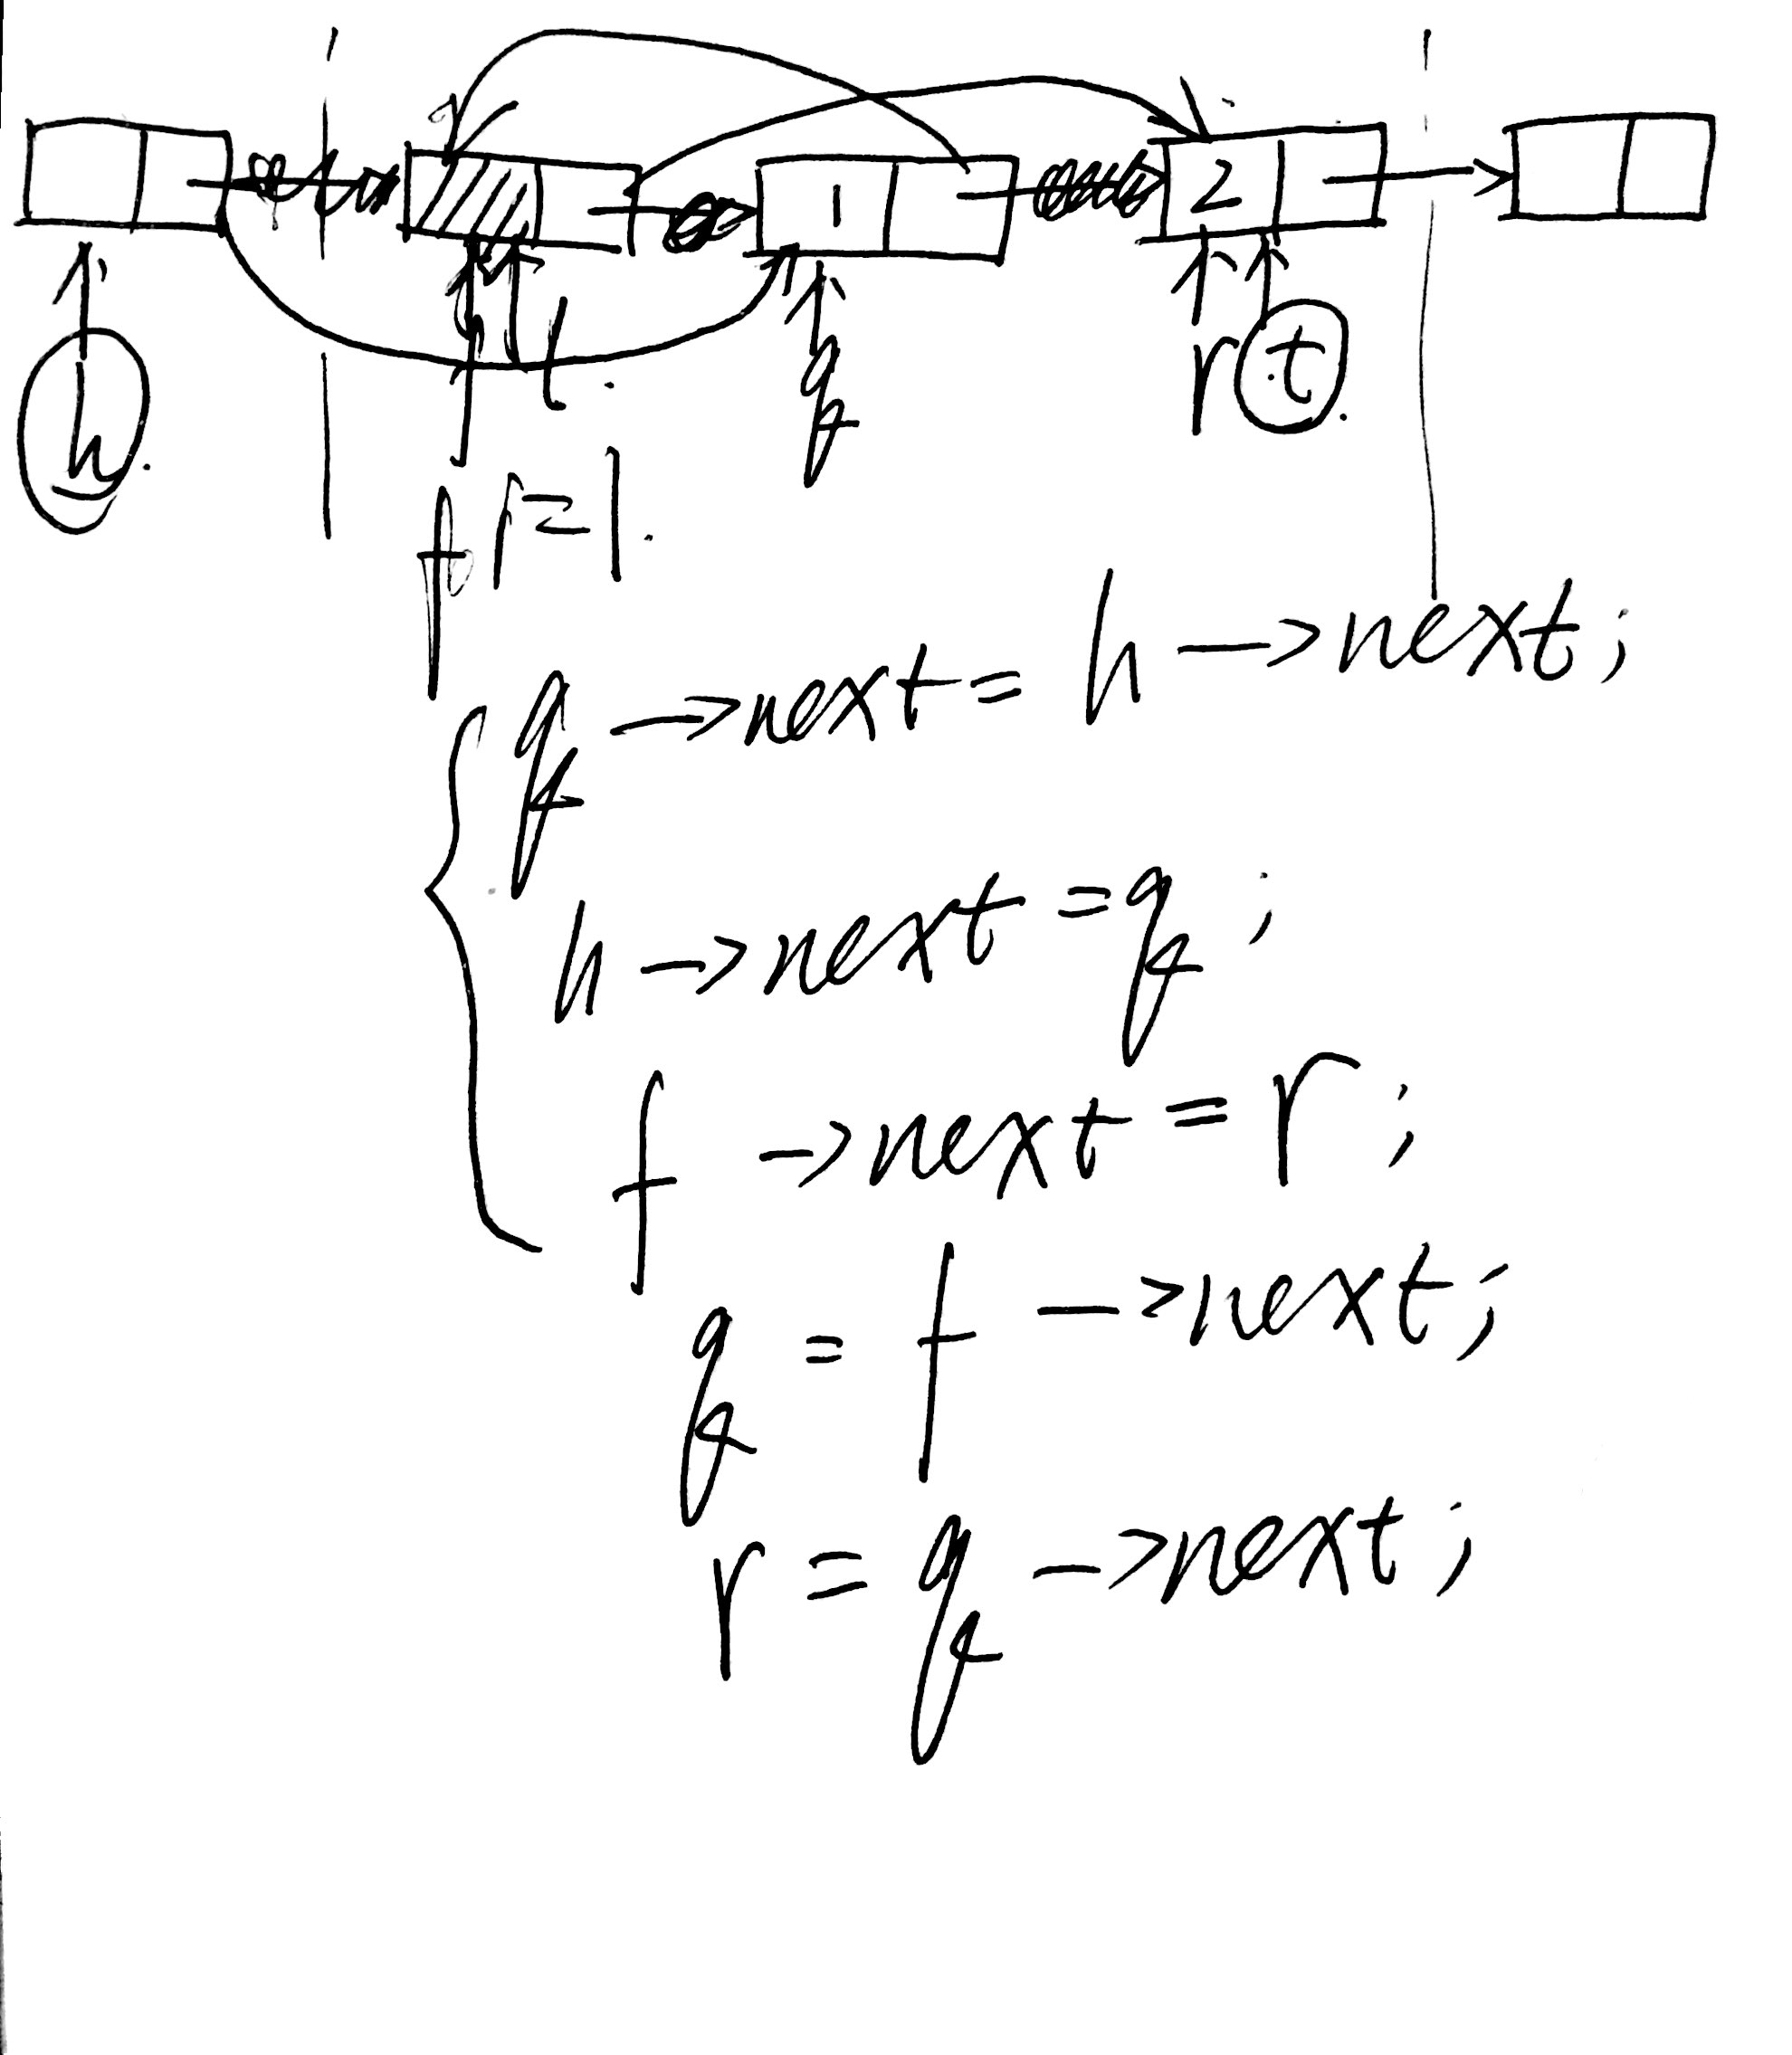 1 2
h t q r t
f r=1.
q->next = h->next;
h->next = q;
f->next = r;
q = f->next;
r = q->next;